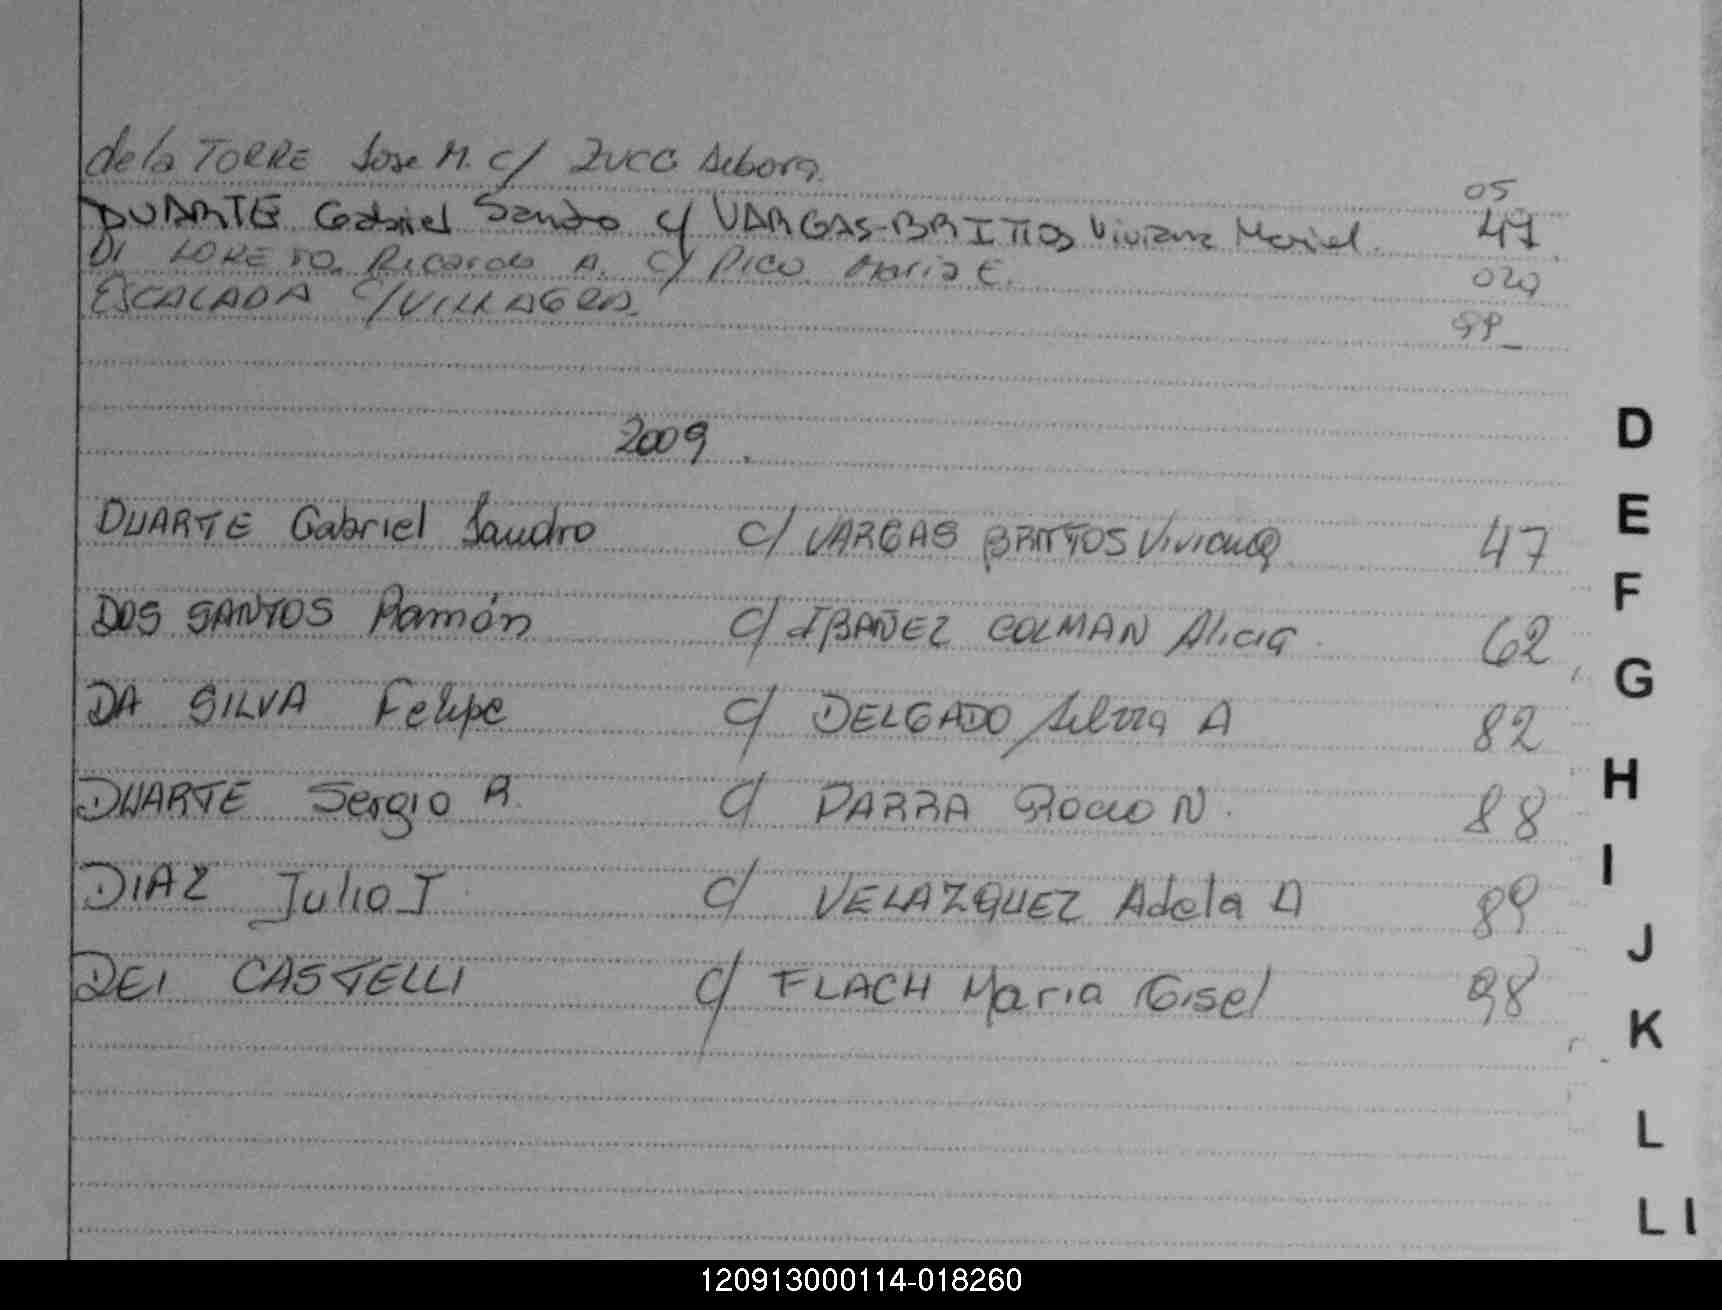 de la TORRE Jose M. c/ ZUCC Debora.
05
DUARTE Gabriel Sandro c/ VARGAS-BRITTOS Viviana Mariel. 47
DI LORETO, Ricardo A. c/ PICO Maria E. 020
ESCALADA c/ VILLAGRA.
2009.
DUARTE Gabriel Sandro c/ VARGAS BRITTOS Viviana 47
DOS SANTOS Ramón c/ IBAÑEZ COLMAN Alicia. 62
DA SILVA Felipe c/ DELGADO A 82
DUARTE Sergio R. c/ PARRA Rocio N. 88
DIAZ Julio I. c/ VELAZQUEZ Adela A 89
DEI CASTELLI c/ FLACH Maria Gisel 98
D
E
F
G
H
I
J
K
L
LI
120913000114-018260